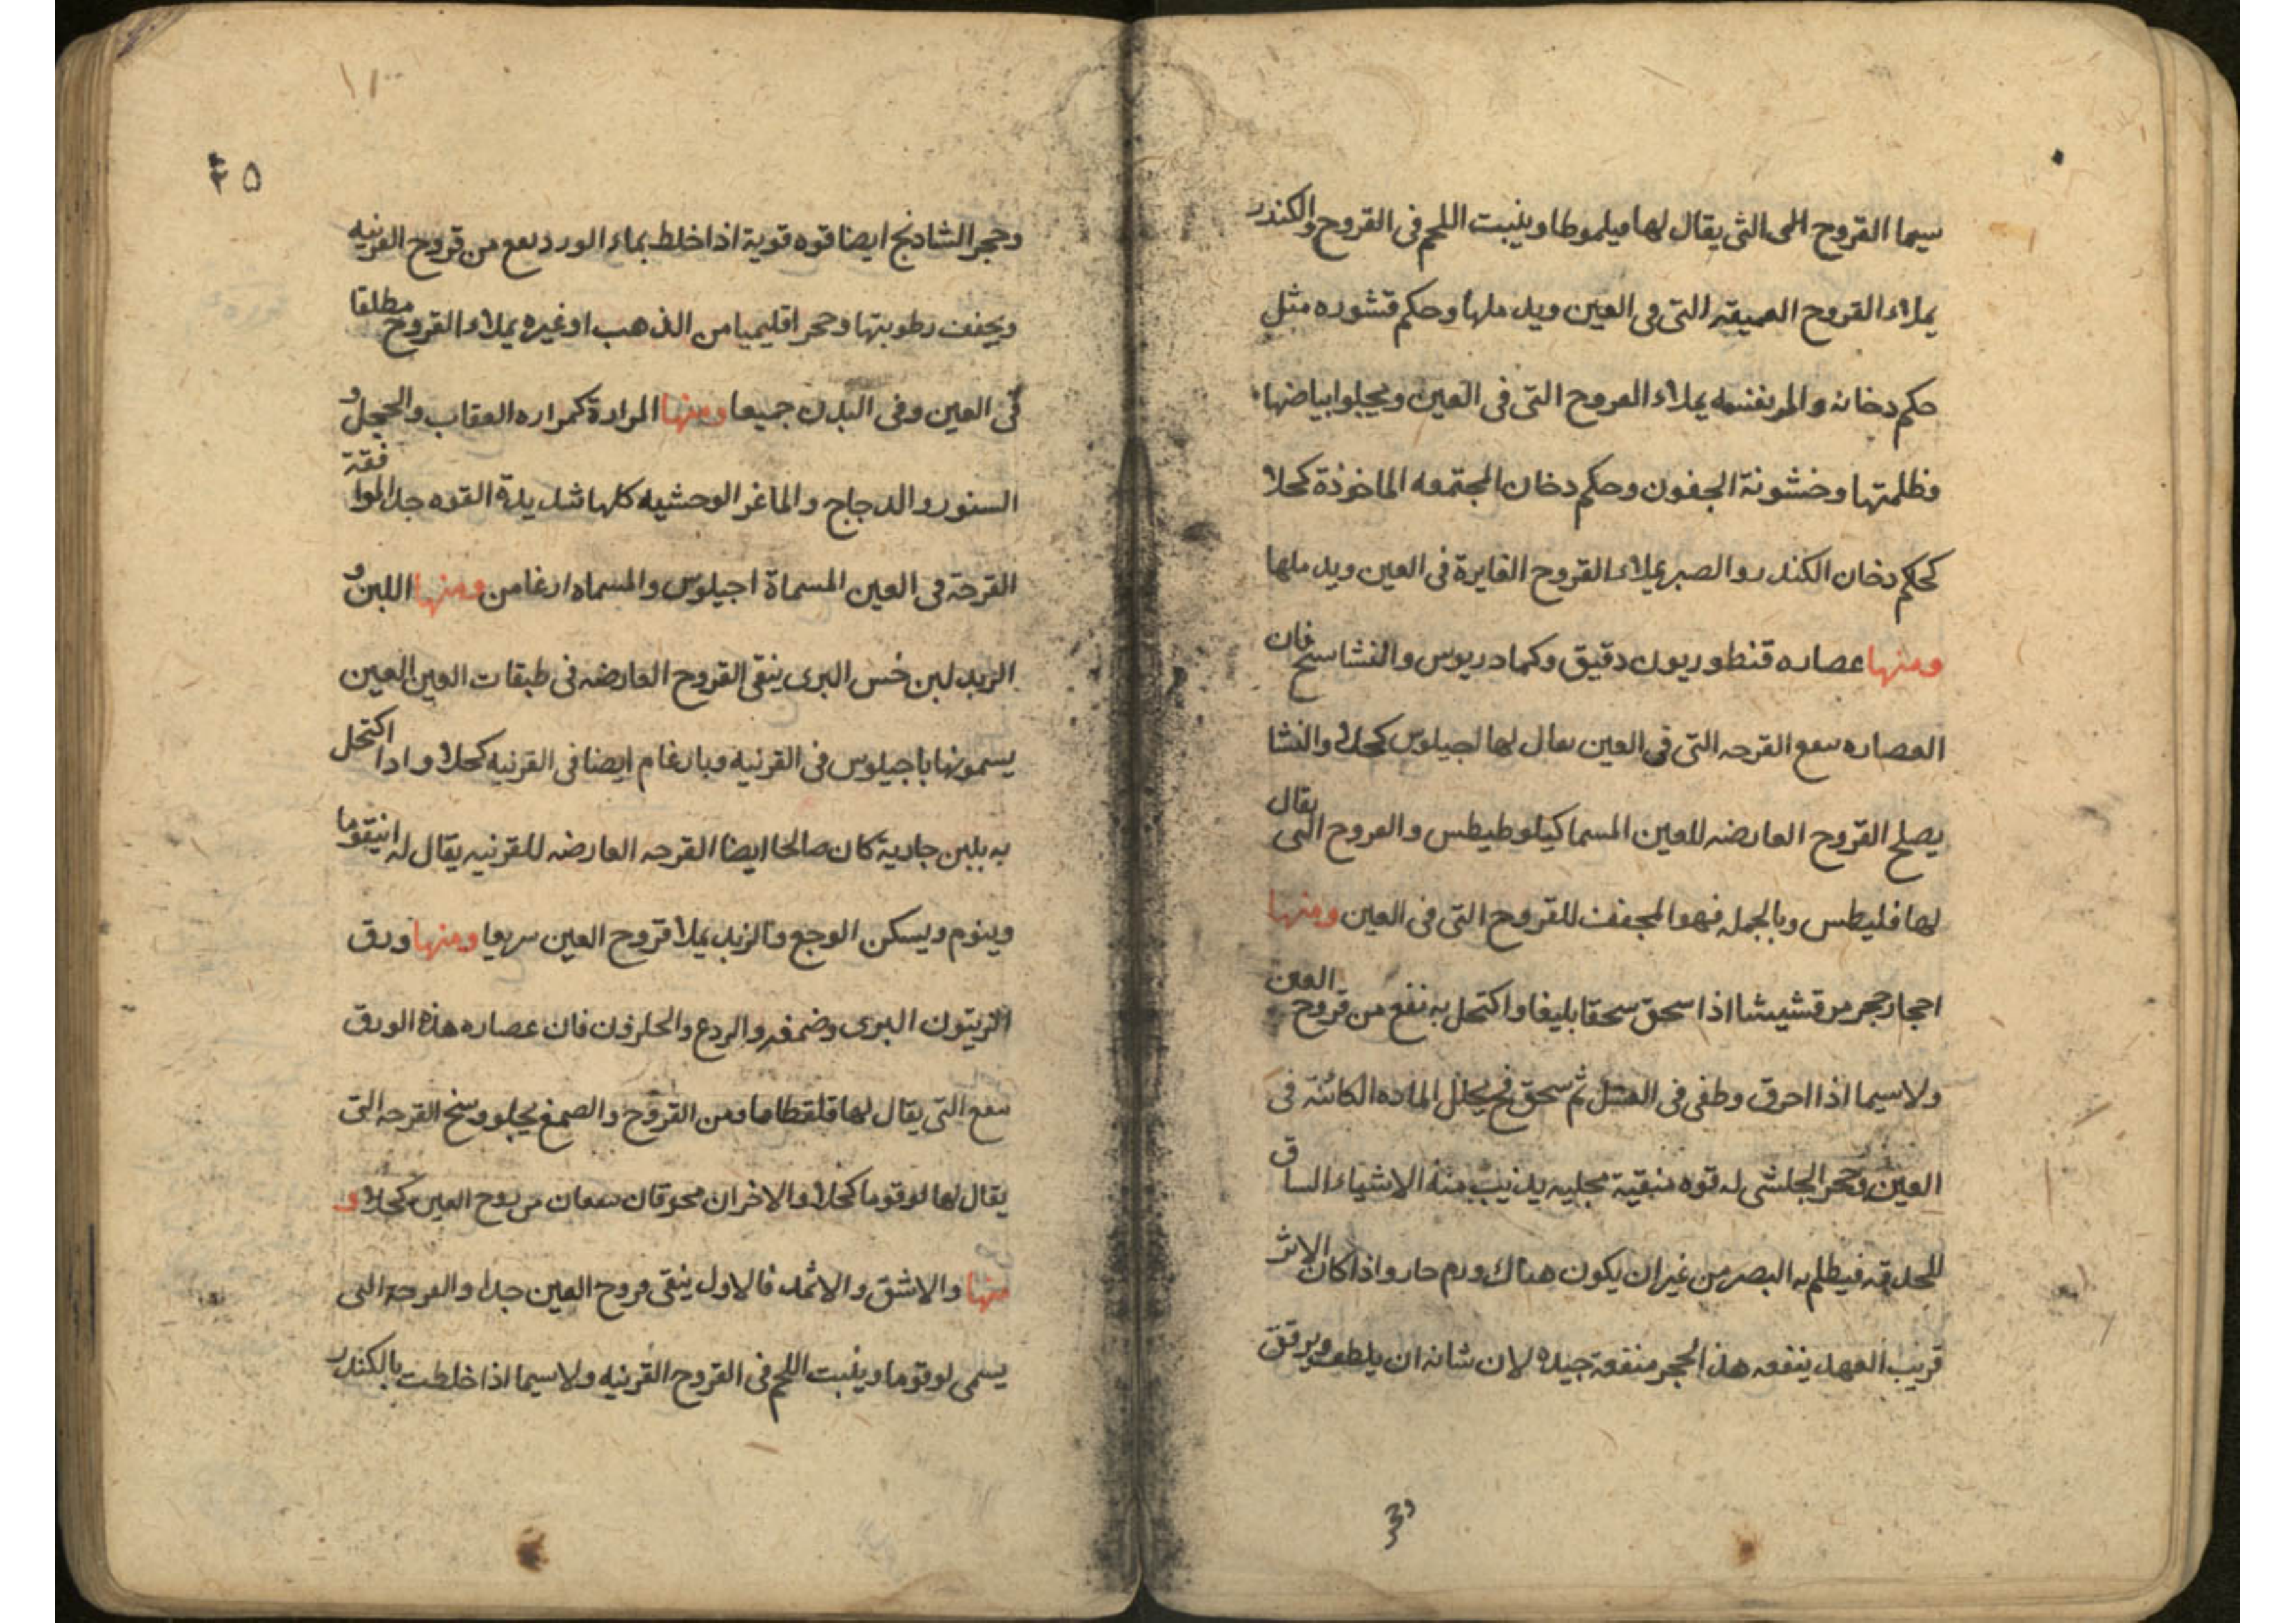 سيما القروح التى التى يقال لها فيلموطا وينبت اللحم فى القروح والكندر
يملاء القروح العميقه التى فى العين ويدملها وحكم قشوره مثل
حكم دخانه والمر بنفسه يملاء القروح التى فى العين ويجلوا بياضها
وظلمتها وخشونة الجفون وحكم دخان المجتمعه الماخوذة كحلا
كحكم دخان الكندر والصبر يملاء القروح الغايرة فى العين ويدملها
ومنها عصاره قنطوريون دقيق وكمادريوس والنشاستج فان
العصاره سفع القرحه التى فى العين يقال لها اجيلوس كحلا والنشا
يصلح القروح العارضه للعين المسما كيلوطيطس والقروح التى يقال
لها فليطس وبالجمله فهو المجفف للقروح التى فى العين ومنها
احجار حجر مرقشيشا اذا سحق سحقا بليغا واكتحل به نفع من قروح العين
ولاسيما اذا احرق وطفى فى العسل ثم سحق فح يحلل الماده الكائنه فى
العين وحجر الجلشى له قوه منقية مجليه يذيب منه الاشياء الساق
للحدقه فيظلم به البصر من غير ان يكون هناك ورم حار واذا كان الاثر
قريب العهد ينفعه هذا الحجر منفعة جيده لان شانه ان يلطف ويرقق
وحجر
۴۵
وحجر الشادنج ايضا قوه قوية اذا خلط بماء الورد نفع من قروح القرنيه
ويجفف رطوبتها وحجر اقليميا من الذهب او غيره يملاء القروح مطلقا
فى العين وفى البدن جميعا ومنها المرارة كمراره العقاب والحجل و
السنور والدجاج والماعز الوحشيه كلها شديدة القوه جدا الموافقة
القرحة فى العين المسماة اجيلوس والمسماه ارغامن ومنها اللبن و
الزبد لبن خس البرى ينقى القروح العارضه فى طبقات العين العين
يسمونها باجيلوس فى القرنيه وبارغام ايضا فى القرنيه كحلا واذا اكتحل
به بلبن جارية كان صالحا ايضا القرحه العارضه للقرنيه يقال له انيقوما
وينوم ويسكن الوجع والزبد يملا قروح العين سريعا ومنها ورق
الزيتون البرى وضمغه والردع والحلزون فان عصاره هذه الورق
سفع التى يقال لها قلقطاما ومن القروح والصمغ يجلو وسخ القرحه التى
يقال لها لوقوما كحلا والاخران محرقان سفعان من قروح العين كحلا و
منها والاشق والاثمد فالاول ينقى قروح العين جدا والقرحة التى
يسمى لوقوما وينبت اللحم فى القروح القرنيه ولاسيما اذا خلطت بالكندر